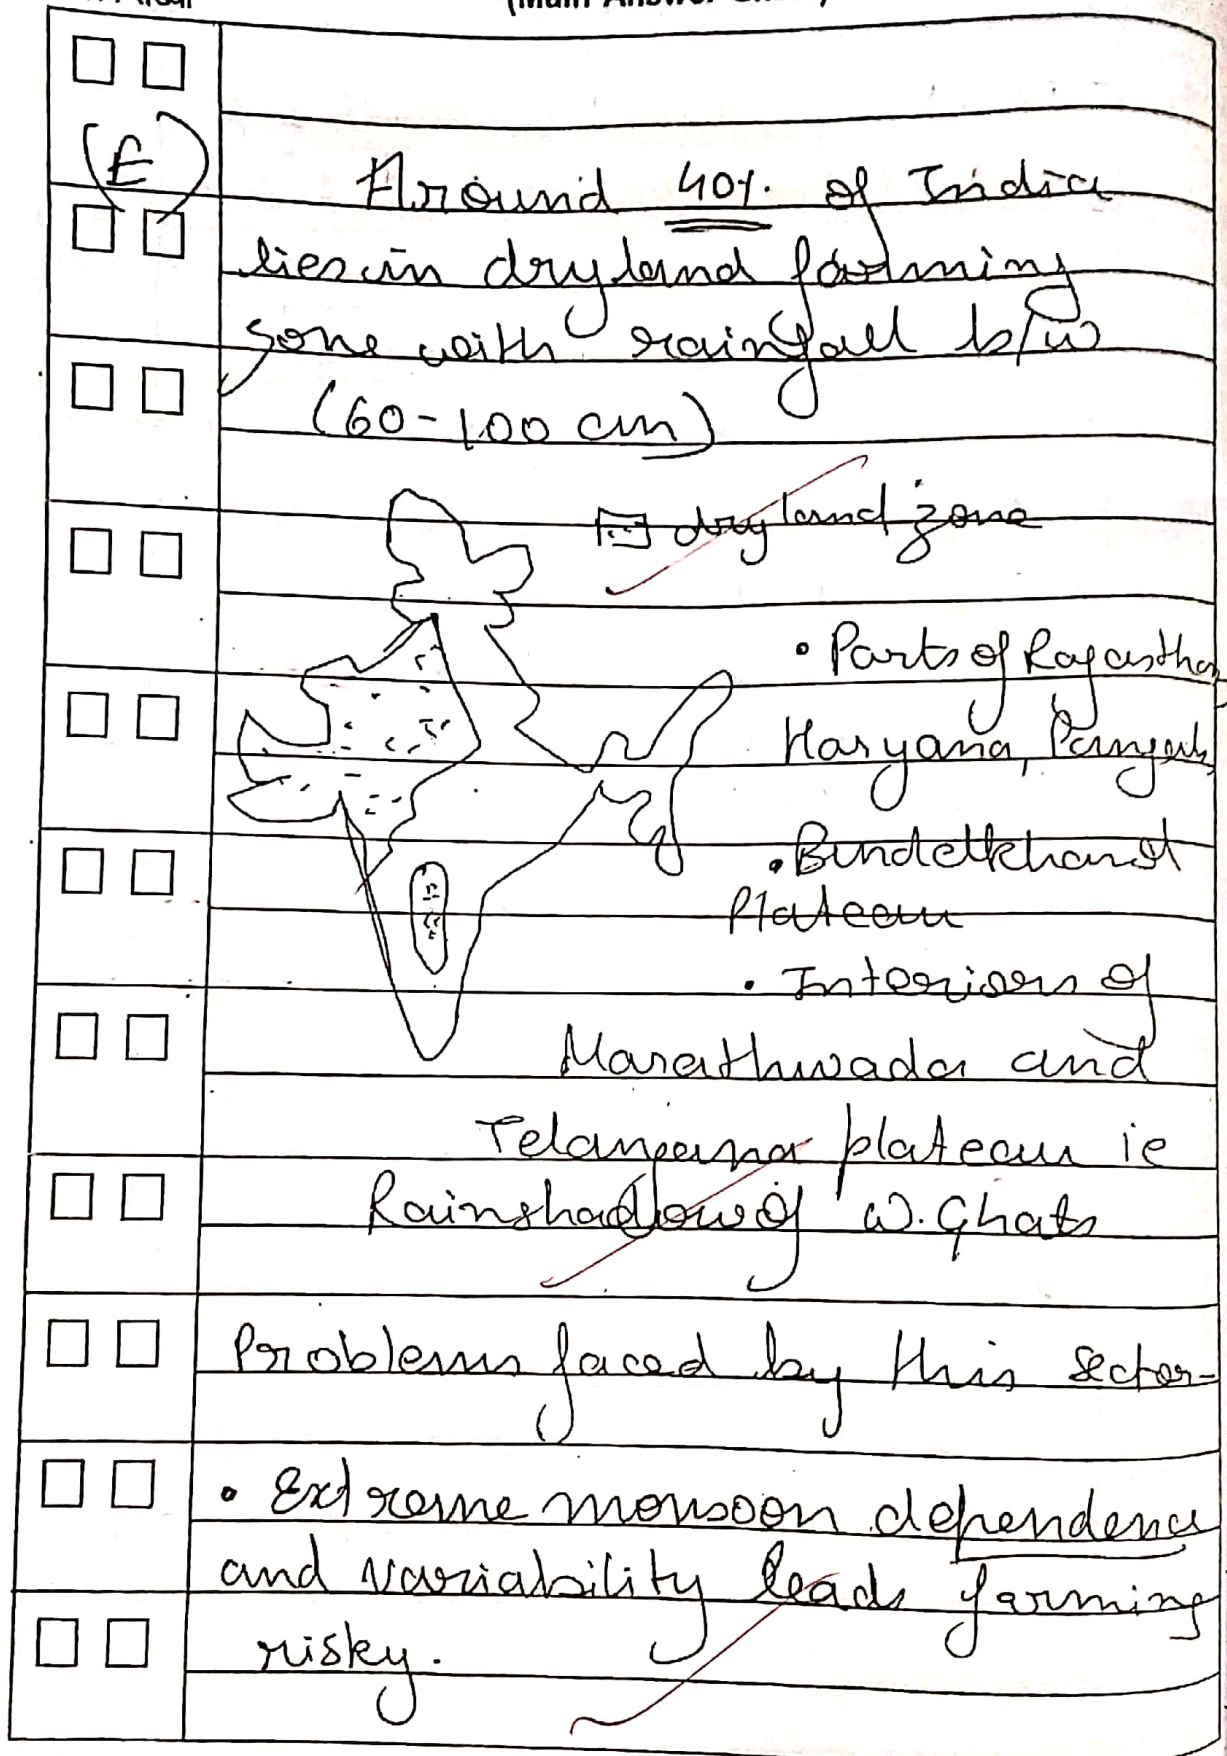 (E)
Around 40%. of India
lies in dryland farming
zone with rainfall b/w
(60-100 cm)
dryland zone
• Parts of Rajasthan,
Haryana, Punjab,
• Bundelkhand
Plateau
• Interiors of
Marathwada and
Telangana plateau ie
Rainshadow of W. Ghats
Problems faced by this sector-
• Extreme monsoon dependence
and variability leads farming
risky.